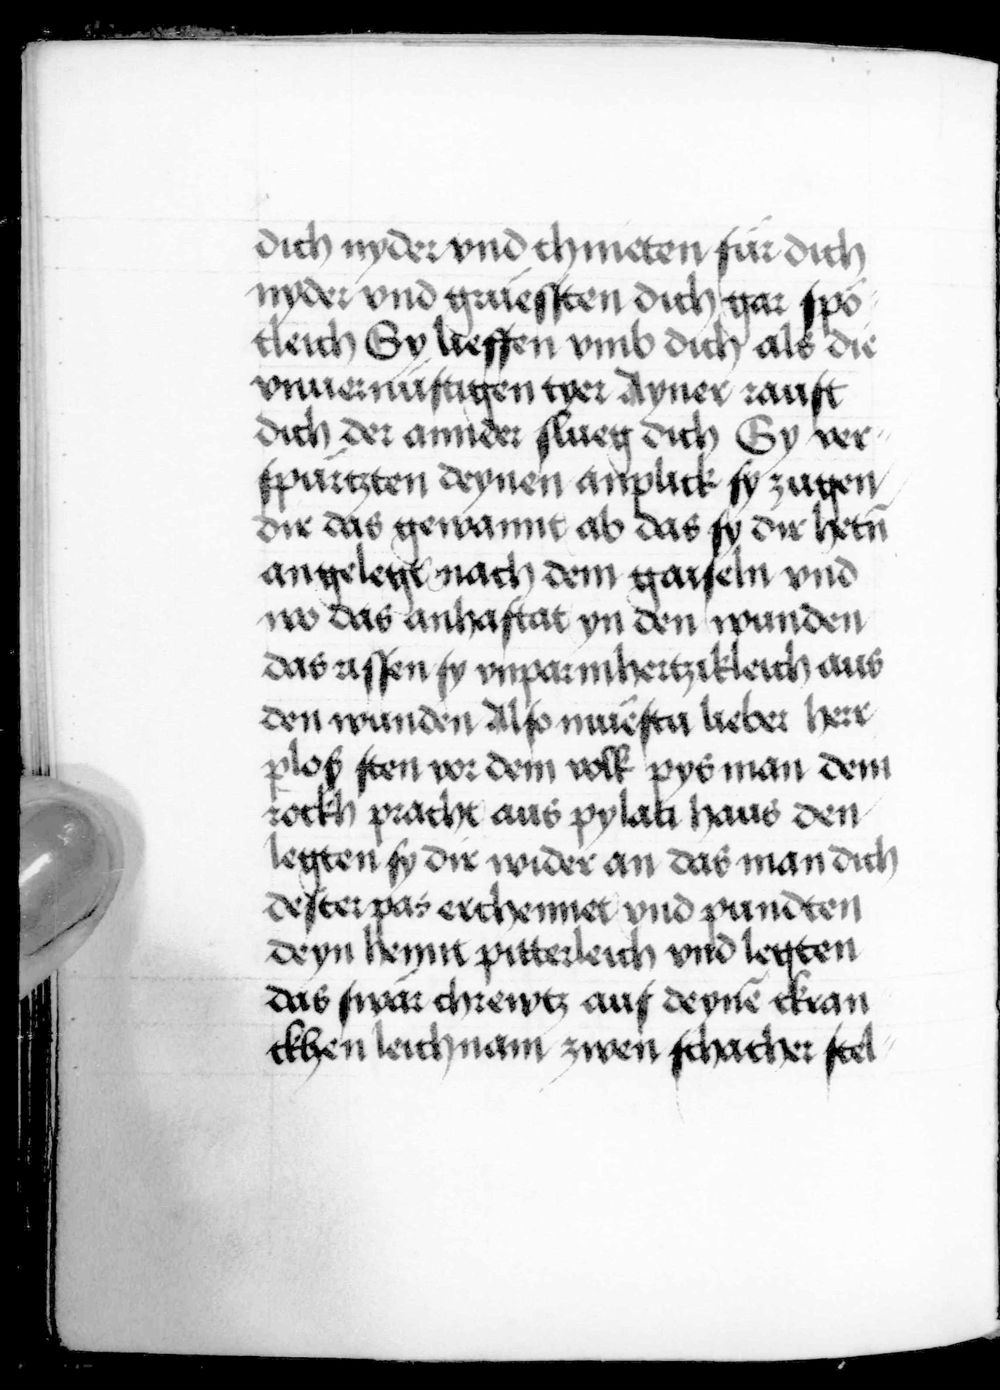 dich nyder vnd chnieten für dich
nyder vnd grüessten dich gar spö-
tleich Sy lieffen vmb dich als die
vnuernüftigen tyer Ayner rauft
dich der annder slueg dich Sy ver-
spürtzten deynen anplick sy zugen
dir das gewannt ab das sy dir hetñ
angelegt nach dem gaiseln vnd
wo das anhaftat yn den wunden
das rissen sy vnparmhertzikleich aus
den wunden Also müestu lieber herr
plos sten vor dem volk pys man dem
rockh pracht aus pylati haus den
legten sy dir wider an das man dich
dester pas erchennet vnd pundten
deyn hennt pitterleich vnd legten
das swär chrewtz auf deynē ckran
ckhen leichnam zwen schacher stel-